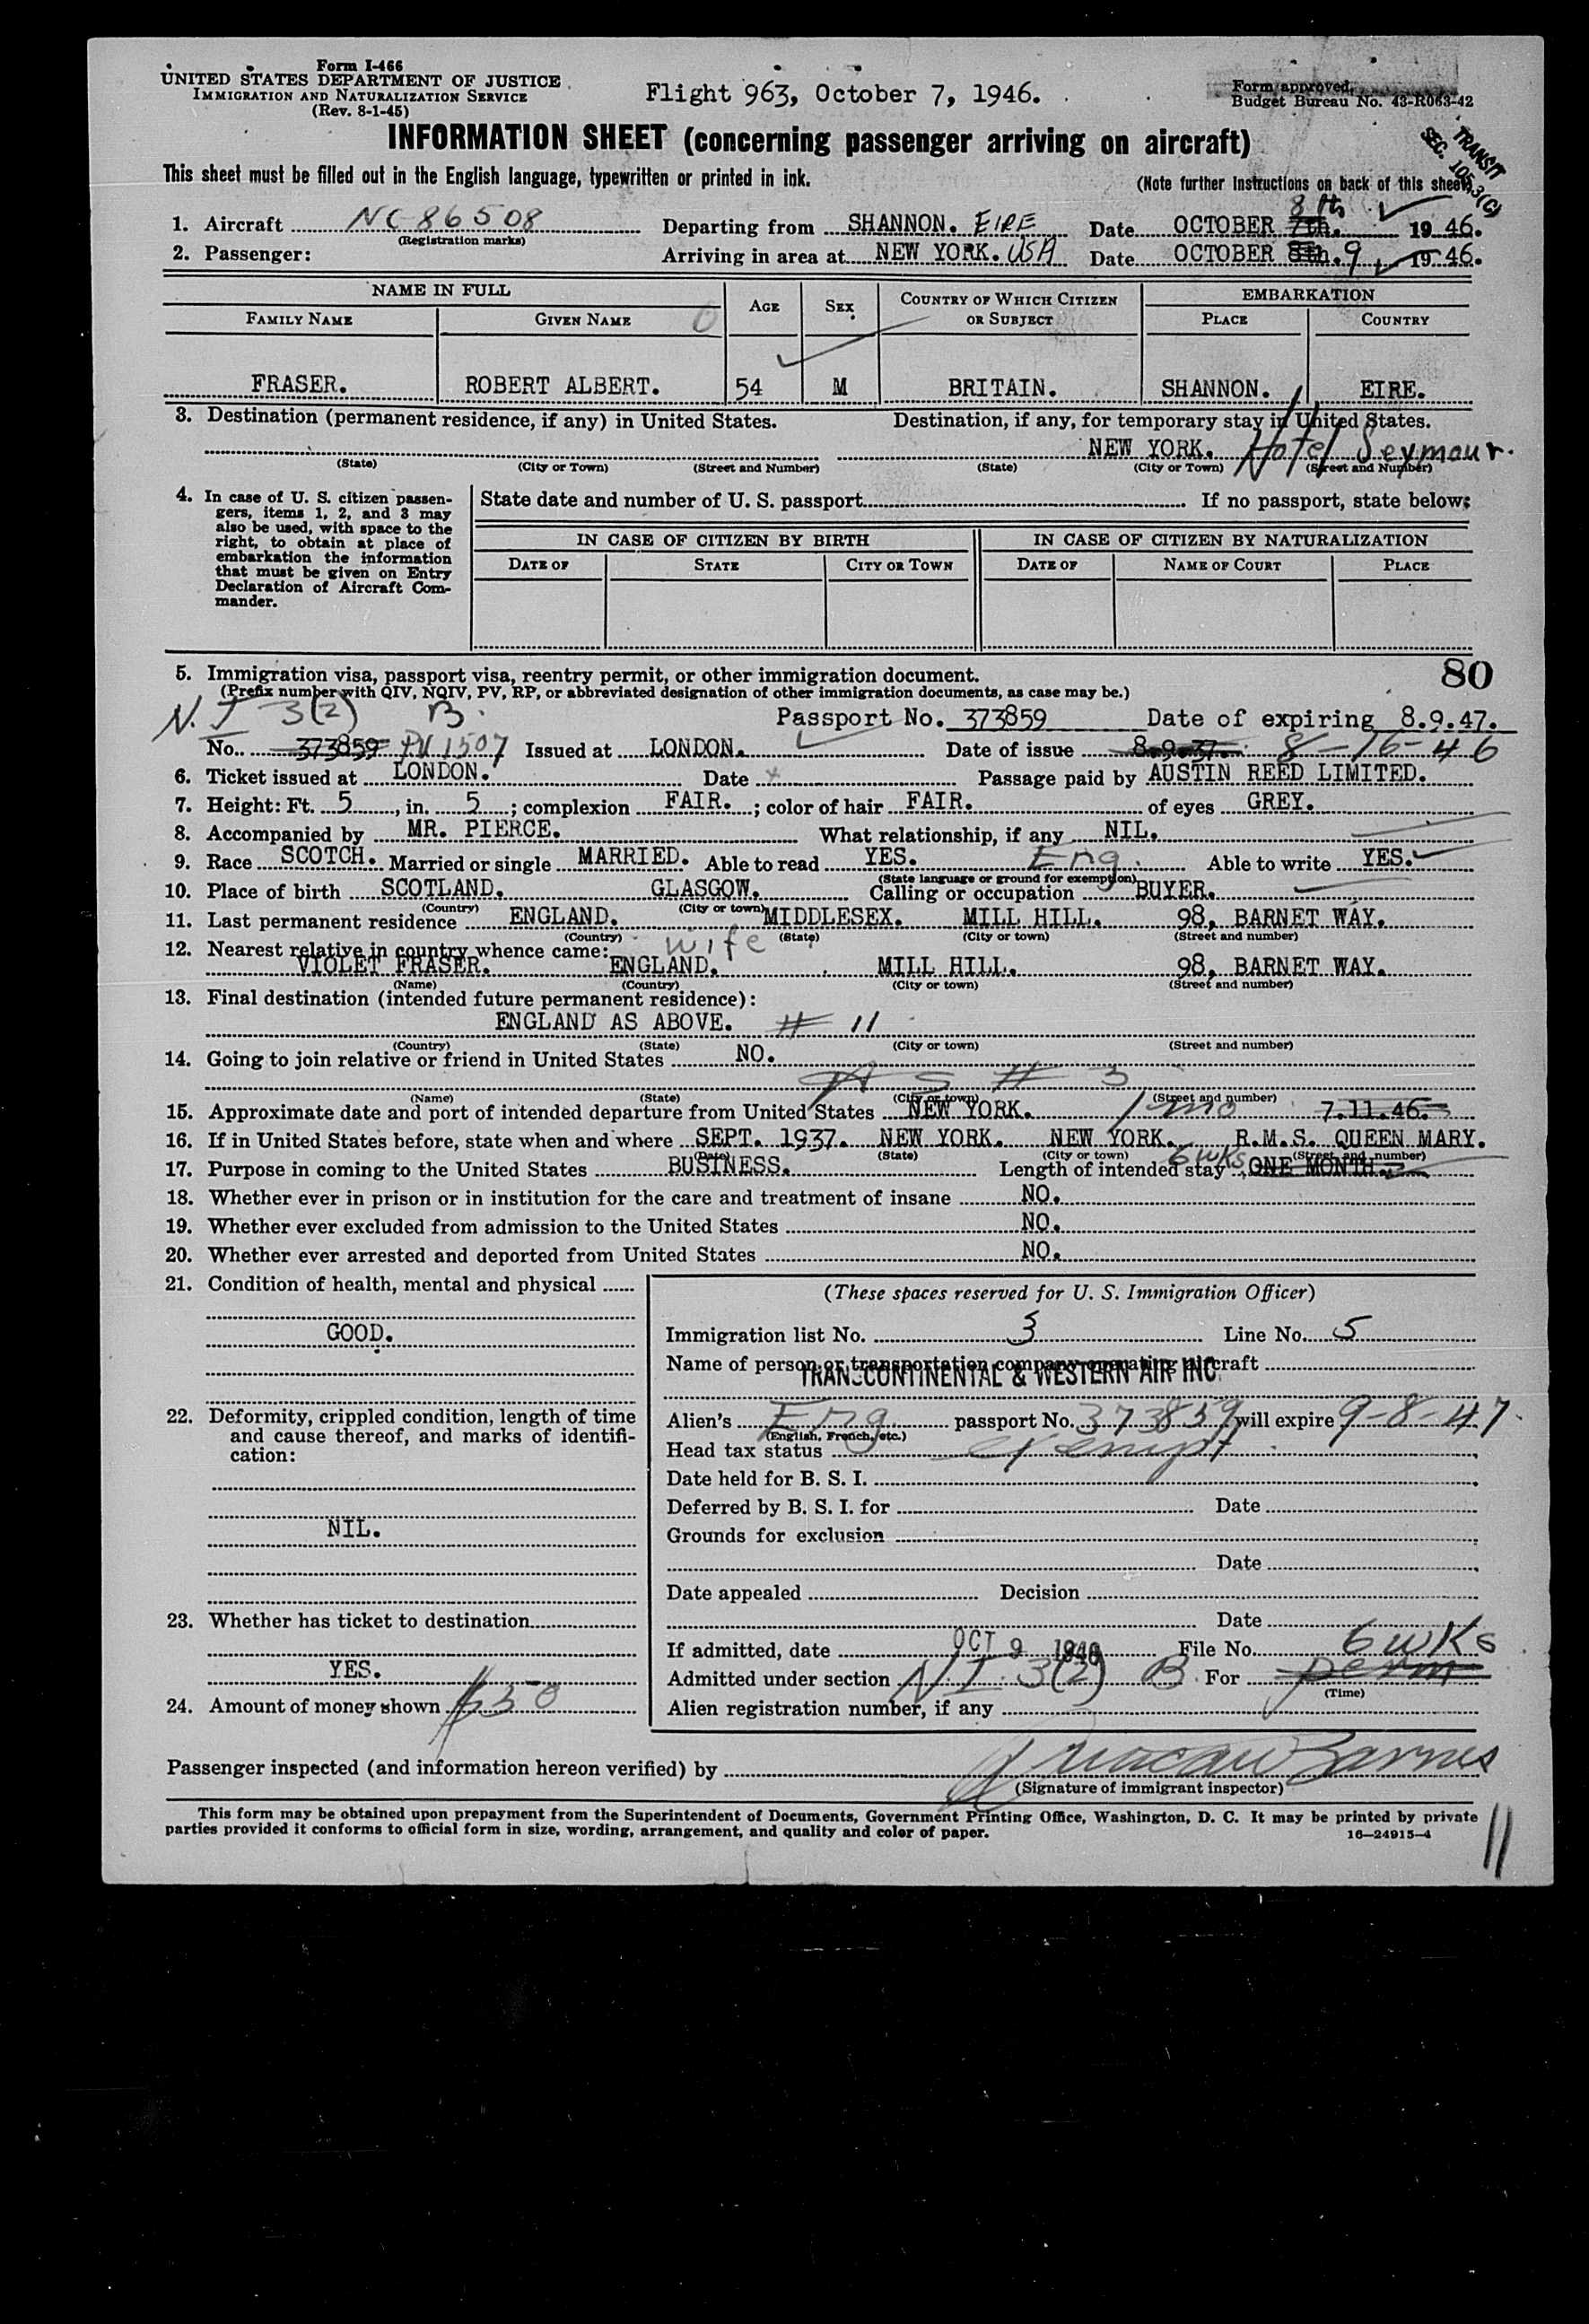 Form I-466
UNITED STATES DEPARTMENT OF JUSTICE
IMMIGRATION AND NATURALIZATION SERVICE
(Rev. 8-1-45)
Flight 963, October 7, 1946.
Form approved.
Budget Bureau No. 43-R063-42
INFORMATION SHEET (concerning passenger arriving on aircraft)
TRANSIT
SEC. 105.3(C)
This sheet must be filled out in the English language, typewritten or printed in ink.
(Note further instructions on back of this sheet)
8th
1. Aircraft NC 86508 Departing from SHANNON. EIRE Date OCTOBER 7th. 1946.
(Registration marks)
2. Passenger: Arriving in area at NEW YORK. USA Date OCTOBER 8th. 9 1946.
NAME IN FULL AGE SEX COUNTRY OF WHICH CITIZEN OR SUBJECT EMBARKATION
FAMILY NAME GIVEN NAME PLACE COUNTRY
FRASER. ROBERT ALBERT. 54 M BRITAIN. SHANNON. EIRE.
3. Destination (permanent residence, if any) in United States. Destination, if any, for temporary stay in United States.
NEW YORK. Hotel Seymour.
(State) (City or Town) (Street and Number) (State) (City or Town) (Street and Number)
4. In case of U. S. citizen passengers, items 1, 2, and 3 may
also be used, with space to the
right, to obtain at place of
embarkation the information
that must be given on Entry
Declaration of Aircraft Com-
mander.
State date and number of U. S. passport If no passport, state below:
IN CASE OF CITIZEN BY BIRTH IN CASE OF CITIZEN BY NATURALIZATION
DATE OF STATE CITY OR TOWN DATE OF NAME OF COURT PLACE
80
5. Immigration visa, passport visa, reentry permit, or other immigration document.
(Prefix number with QIV, NQIV, PV, RP, or abbreviated designation of other immigration documents, as case may be.)
N.I 3(2) B.
Passport No. 373859 Date of expiring 8.9.47.
No. 373859 PV 1507 Issued at LONDON. Date of issue 8.9.37. 8-16-46
6. Ticket issued at LONDON. Date Passage paid by AUSTIN REED LIMITED.
7. Height: Ft. 5, in. 5; complexion FAIR.; color of hair FAIR. of eyes GREY.
8. Accompanied by MR. PIERCE. What relationship, if any NIL.
9. Race SCOTCH. Married or single MARRIED. Able to read YES. Eng. Able to write YES.
(State language or ground for exemption)
10. Place of birth SCOTLAND. GLASGOW. Calling or occupation BUYER.
(Country) (City or town)
11. Last permanent residence ENGLAND. MIDDLESEX. MILL HILL. 98, BARNET WAY.
(Country) (State) (City or town) (Street and number)
12. Nearest relative in country whence came: wife
VIOLET FRASER. ENGLAND. MILL HILL. 98, BARNET WAY.
(Name) (Country) (City or town) (Street and number)
13. Final destination (intended future permanent residence):
ENGLAND AS ABOVE. # 11
(Country) (State) (City or town) (Street and number)
14. Going to join relative or friend in United States NO.
As # 3
(Name) (State) (City or town) (Street and number)
15. Approximate date and port of intended departure from United States NEW YORK. 1 mo 7.11.46.
16. If in United States before, state when and where SEPT. 1937. NEW YORK. NEW YORK. R.M.S. QUEEN MARY.
(Date) (State) (City or town) (Street and number)
17. Purpose in coming to the United States BUSINESS. Length of intended stay 6 wks ONE MONTH.
18. Whether ever in prison or in institution for the care and treatment of insane NO.
19. Whether ever excluded from admission to the United States NO.
20. Whether ever arrested and deported from United States NO.
21. Condition of health, mental and physical
GOOD.
22. Deformity, crippled condition, length of time
and cause thereof, and marks of identifi-
cation:
NIL.
23. Whether has ticket to destination
YES.
24. Amount of money shown $50
(These spaces reserved for U. S. Immigration Officer)
Immigration list No. 3 Line No. 5
Name of person or transportation company operating aircraft
TRANSCONTINENTAL & WESTERN AIR INC.
Alien's Eng. passport No. 373859 will expire 9-8-47
(English, French, etc.)
Head tax status exempt
Date held for B. S. I.
Deferred by B. S. I. for Date
Grounds for exclusion
Date
Date appealed Decision
Date
If admitted, date OCT 9 1946 File No. 6 wks
Admitted under section NI 3(2) B For perm
(Time)
Alien registration number, if any
Passenger inspected (and information hereon verified) by
(Signature of immigrant inspector)
This form may be obtained upon prepayment from the Superintendent of Documents, Government Printing Office, Washington, D. C. It may be printed by private
parties provided it conforms to official form in size, wording, arrangement, and quality and color of paper.
16—24915-4
11